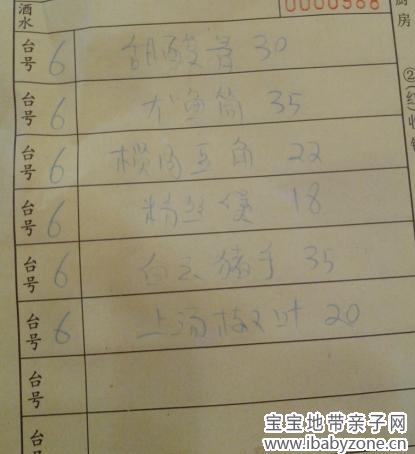 酒水 0000988 厨房
台号 6 酸骨 30
台号 6 尤鱼筒 35
台号 6 榄肉豆角 22
台号 6 粉丝煲 18
台号 6 白云猪手 35
台号 6 上汤 叶 20
台号
台号
②(红)收
宝宝地带亲子网
www.ibabyzone.cn